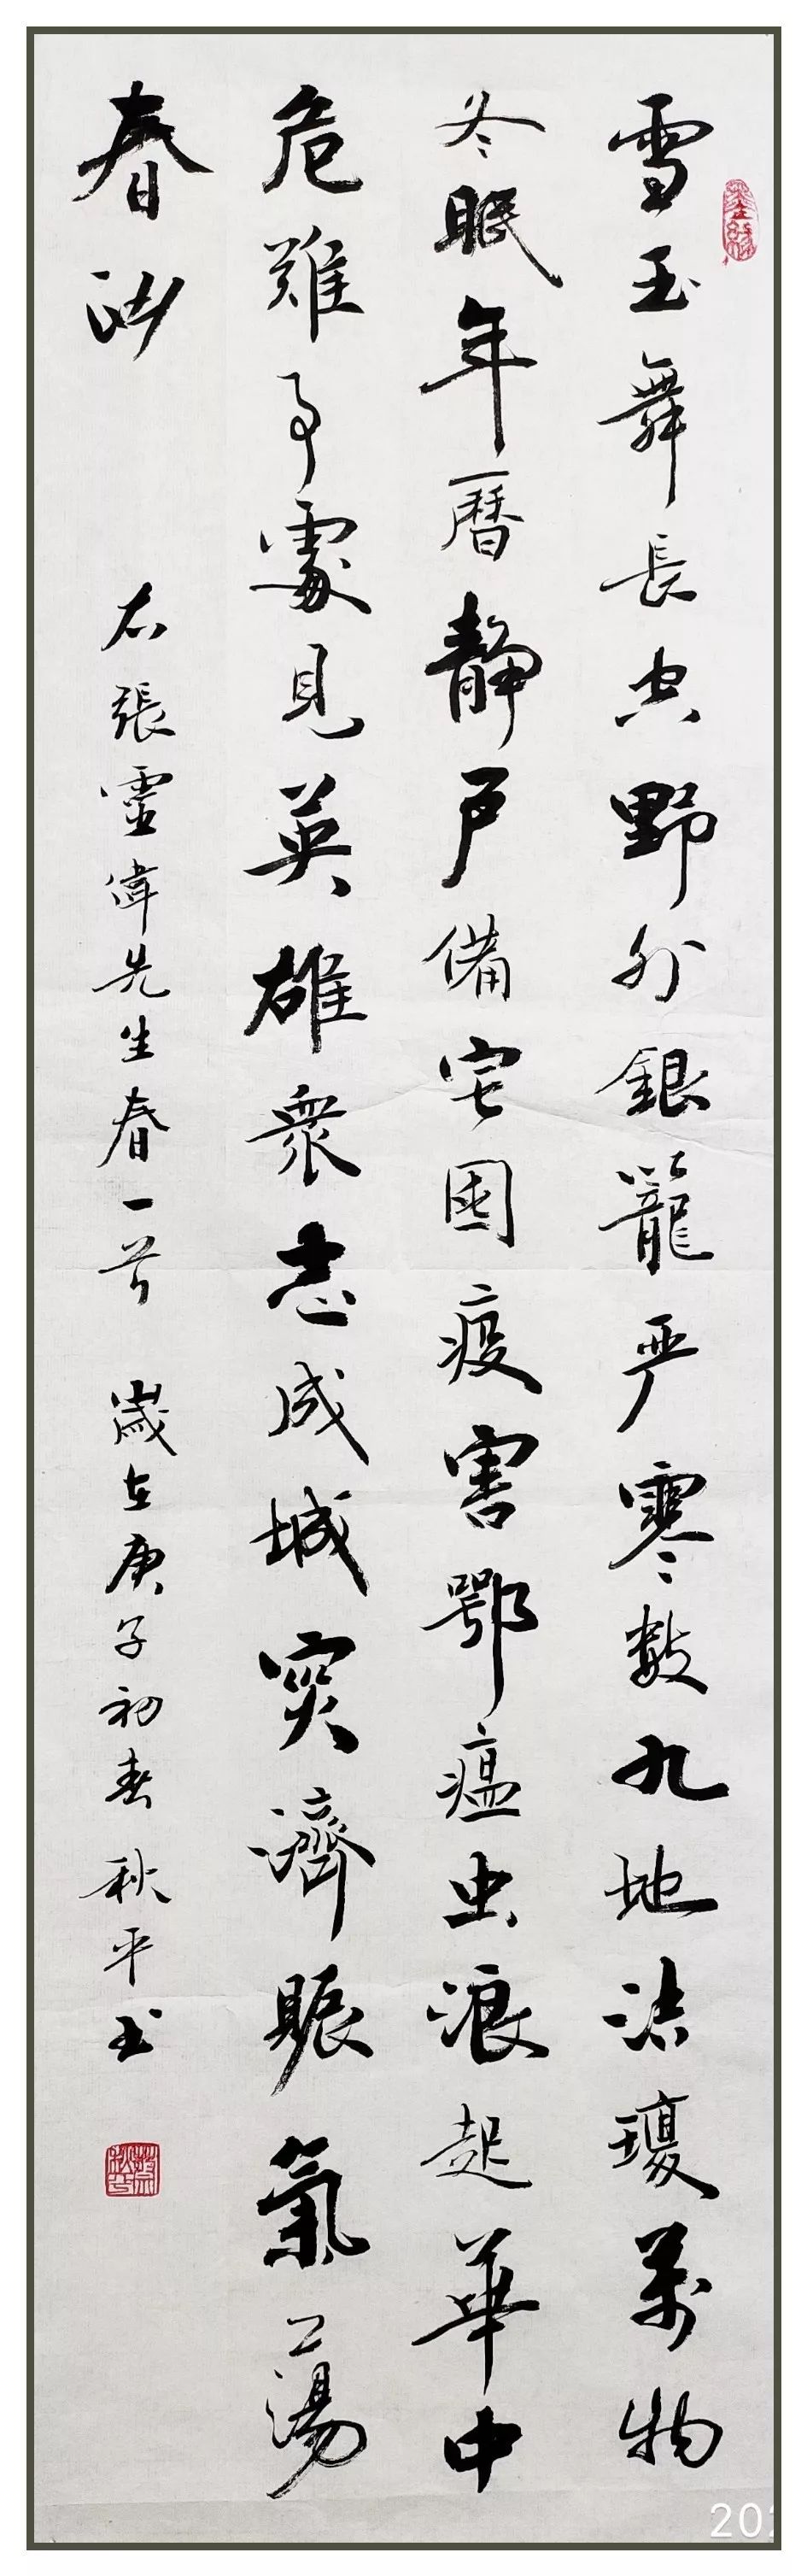 雪玉舞長空野外銀籠严寒数九地洁瓊萬物
冬眠年曆静户備宅困疫害鄂瘟虫浪起華中
危難事處見英雄衆志成城災濟賑氣蕩
春汹
右張靈偉先生春一首 歲在庚子初春 秋平书
202